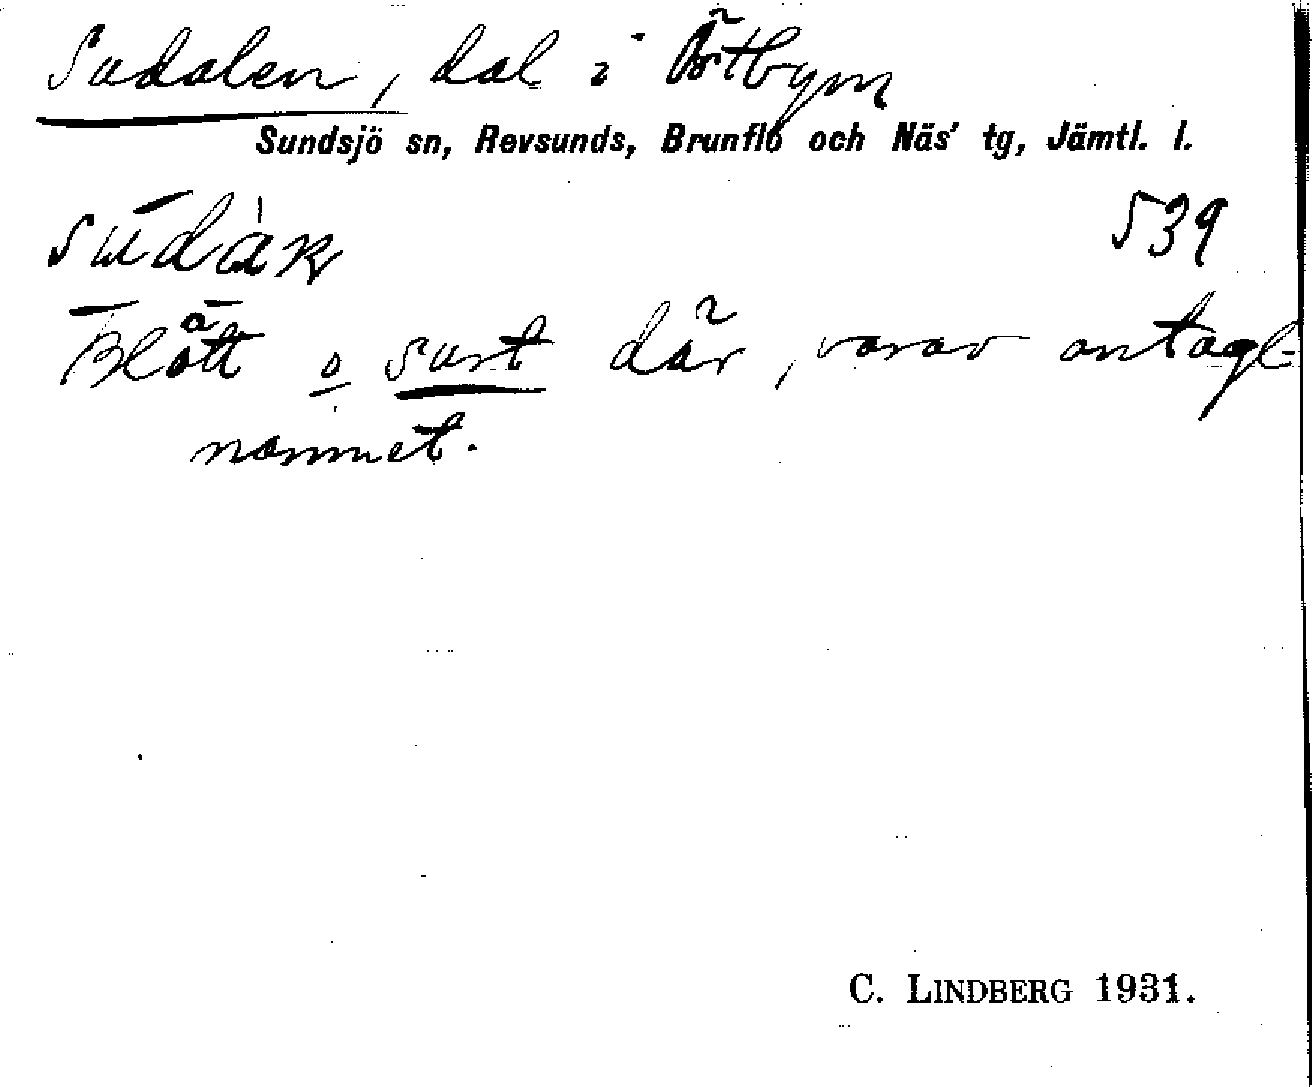 Sudalen, dal i Östbyn
Sundsjö sn, Revsunds, Brunflo och Näs' tg, Jämtl. l.
539
Blött o surt där, varav antagl
namnet.
C. LINDBERG 1931.